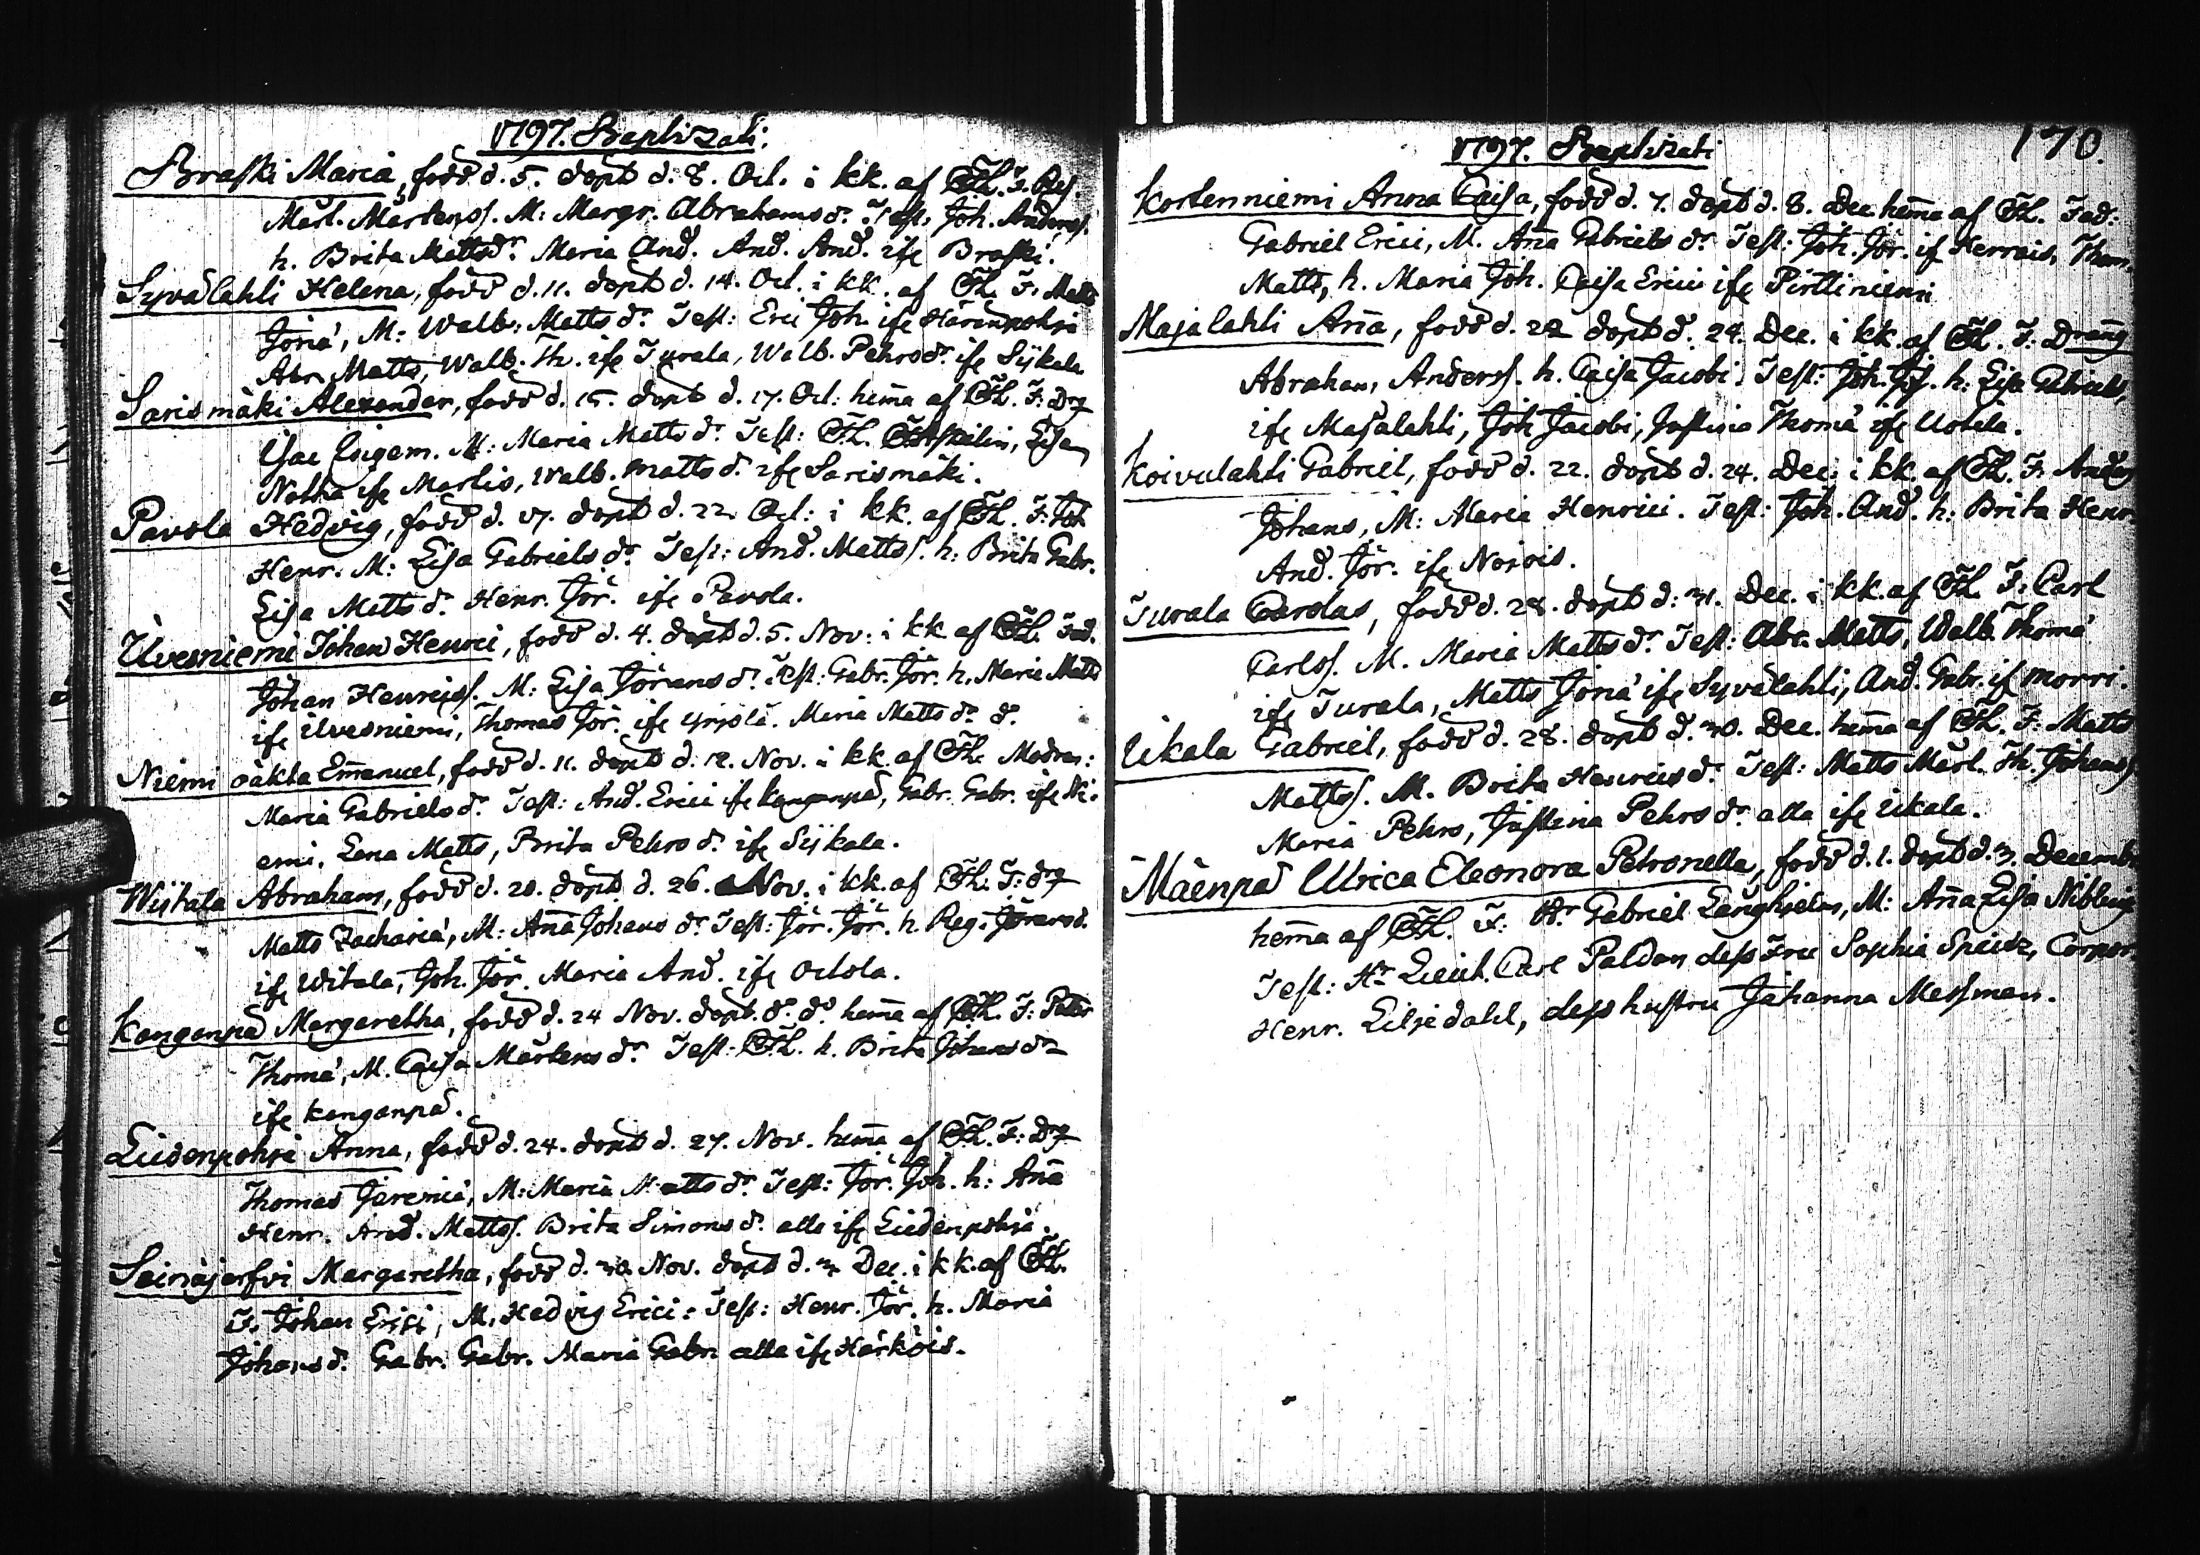 1797. Baptizati.
Braski Maria, född d. 5. döpt d. 8. Oct. i kk. af Th. F. Res.
Mårt. Mårtenss. M: Margr. Abrahams dr. Test: Joh. Anderss.
h. Brita Mattsdr. Maria And. And. And. ifr Braski.
Syvälahti Helena, född d. 11. döpt d. 14. Oct. i kk. af Th. F. Matts
Joriæ, M: Walb: Matts dr. Test: Erici Joh. ifr Häränpohja
Abr. Matts, Walb. Th. ifr Turala, Walb. Pehrs dr. ifr Sijkala
Sarismäki Alexander, född d. 15. döpt d. 17. Oct: hema af Th. F: Drg
Isac M: Maria Matts dr. Test: Th. Lisa
Natha ifr Martis, Walb. Matts d. ifr Sarismäki.
Pavola Hedvig, född d. 17. döpt d. 22. Oct: i kk. af Th. F: Joh
Henr. M: Lisa Gabriels dr. Test: And. Mattss. h: Brita Gabr.
Lisa Matts d. Henr. Jör. ifr Pavola.
Ilvesniemi Johan Henrici, född d. 4. döpt d. 5. Nov: i kk af Th. Fad.
Johan Henricss. M: Lisa Jörans d. Test: Gabr. Jör. h. Maria Matts
ifr Ilvesniemi, Thomas Jör. ifr Yrjölä. Maria Matts dr d.
Niemi oäkta Emanuel, född d. 11. döpt d. 12. Nov. i kk. af Th. Modren:
Maria Gabriels dr. Test: And. Erici ifr Kangonpä, Gabr. Gabr. ifr Ni-
emi. Lena Matts, Brita Pehrs d. ifr Sijkala.
Wijtala Abraham, född d. 20. döpt d. 26. Nov. i kk. af Th. F: drg
Matts Zachariæ, M: Ana Johans dr. Test: Jör. Jör. h. Reg. Jörans d.
ifr Witala, Joh. Jör. Maria And. ifr Ochola.
Kangonpä Margaretha, född d. 24 Nov. döpt. d. do. hema af Th. F: Petter
Thomæ, M. Caisa Mårtens dr. Test: Th. h. Brita Johans dr
ifr Kangonpä.
Liedenpohja Anna, född d. 24. döpt d. 27. Nov. hema af Th. F: Drg
Thomas Jeremiæ, M: Maria Matts dr. Test: Jör. Joh. h: Ana
Henr. And. Mattss. Brita Simons d. alla ifr Liedenpohja.
Seinäjerfvi Margaretha, född d. 30. Nov. döpt d. 3. Dec. i kk. af Th.
F. Johan Erici, M. Hedvig Erici: Test: Henr. Jör. h. Maria
Johans d. Gabr. Gabr. Maria Gabr. alla ifr Härköis.
170.
1797. Baptizati
Kortenniemi Anna Caisa, född d. 7. döpt d. 8. Dec. hema af Th. Fad:
Gabriel Erici, M. Ana Gabriels dr. Test: Joh. Jör. ifr Herrais, Thom.
Matts, h. Maria Joh. Caisa Erici ifr Pirttiniemi
Majalahti Ana, född d. 22 döpt d. 24. Dec. i kk. af Th. F: Dräng
Abraham, Anderss. h. Caisa Jacobi. Test: Joh. Joh. h: Lisa Gabriels,
ifr Majalahti, Joh Jacobi, Justina Thomæ ifr Uotila.
Koivulahti Gabriel, född d. 22. döpt d. 24. Dec. i kk. af Th. F: Anders
Johans, M: Maria Henrici. Test: Joh. And. h: Brita Henr.
And. Jör. ifr Nojois.
Turala Carolus, född d. 28. döpt d: 31. Dec. i kk. af Th. F: Carl
Carlss. M. Maria Matts dr. Test: Abr. Matts, Walb. Thomæ
ifr Turala, Matts Joriæ ifr Syvälahti, And. Gabr. ifr Morri.
Ukala Gabriel, född d. 28. döpt d. 30. Dec. hema af Th. F: Matts
Mattss. M. Brita Henrics dr. Test: Matts Mårt. Th. Johanss
Maria Pehrs, Justina Pehrs dr. alla ifr Ukala.
Mäenpä Ulrica Eleonora Petronella, född d. 1. döpt d. 3. Decembr
hema af Th. F: Hr Gabriel Långhjelm, M: Ana Lisa Nibling
Test: Hr Lieut. Carl Paldan dess Fru Sophia Speitz, Corpor.
Henr. Liljedahl, dess hustru Johanna Messman.